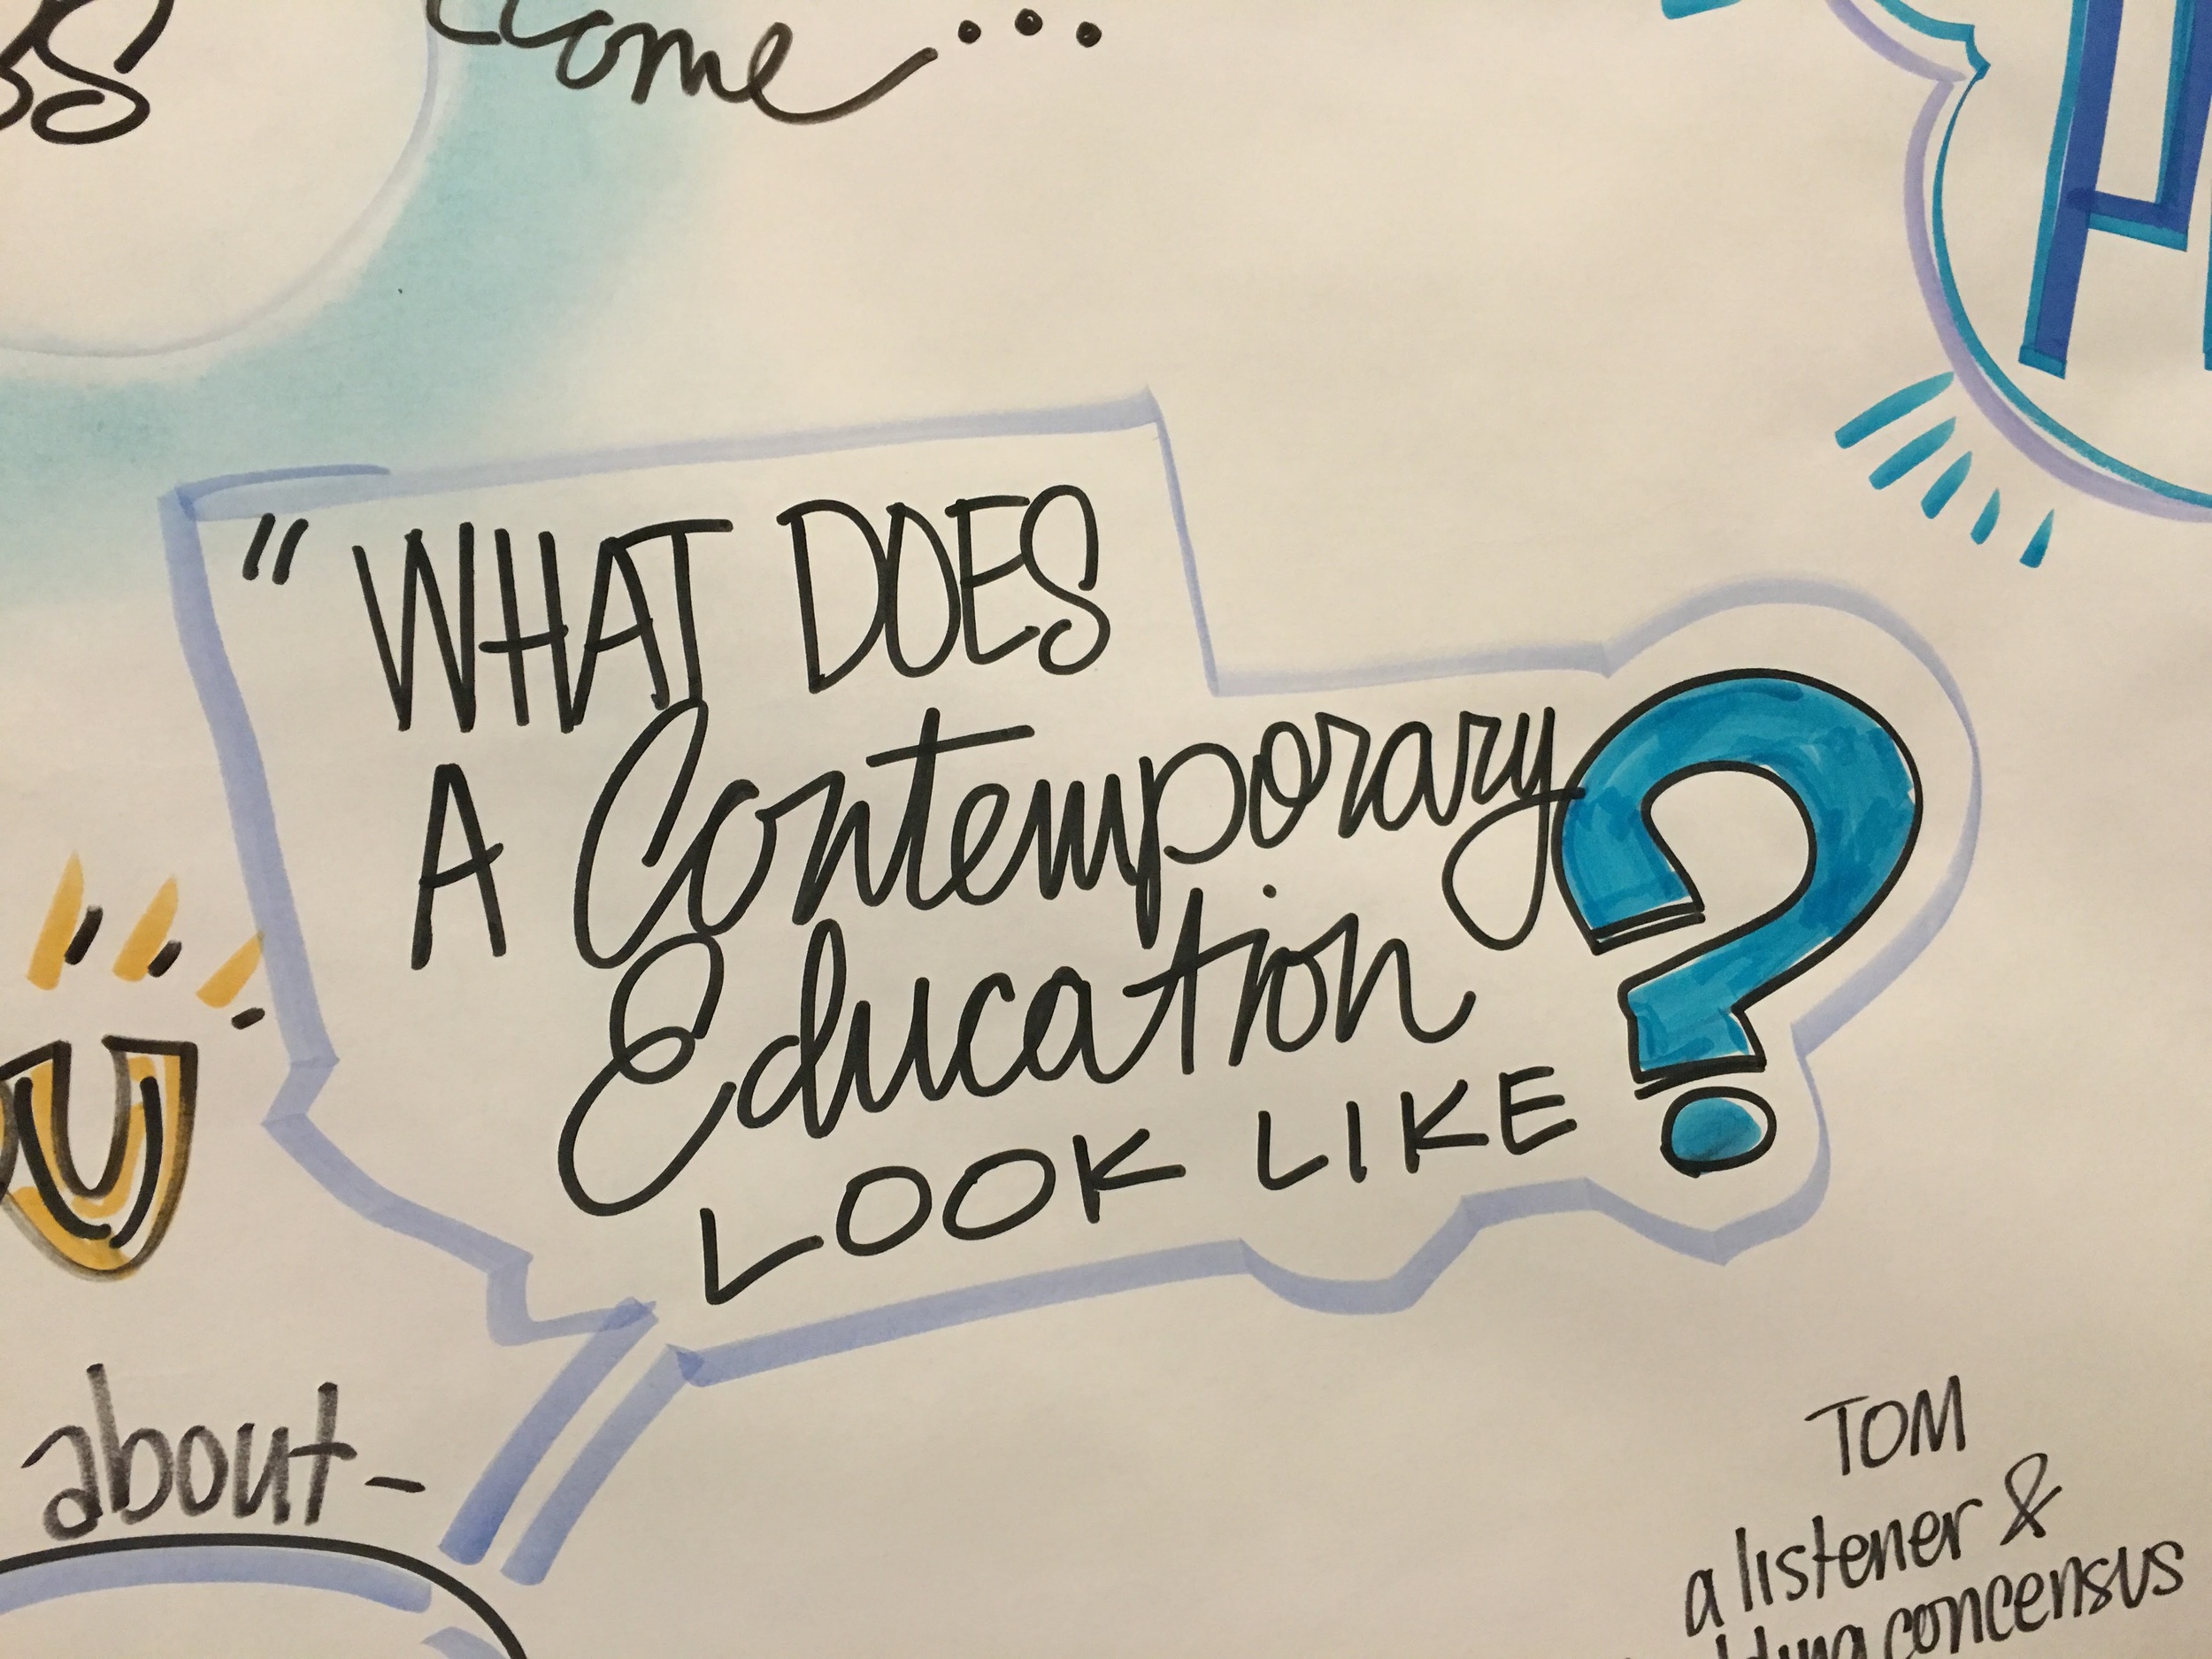 ...
" WHAT DOES
A Contemporary
Education
LOOK LIKE ?
about-
TOM
a listener &
concensus